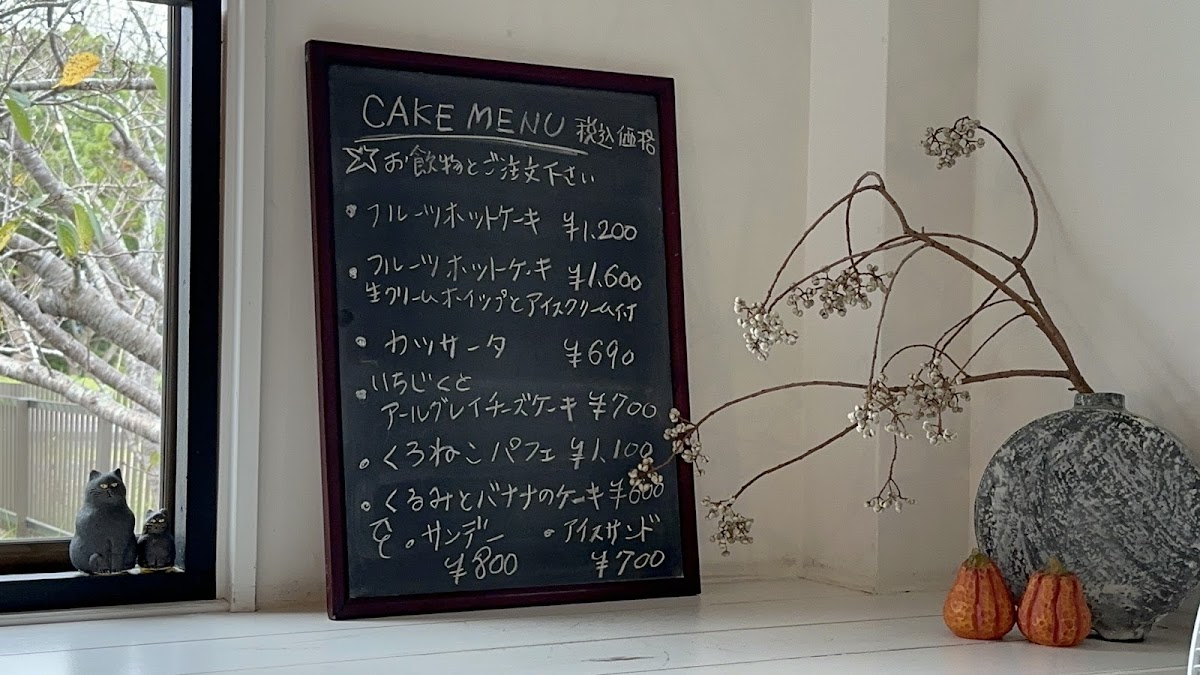 CAKE MENU 税込価格
☆お飲物とご注文下さい
• フルーツホットケーキ ¥1.200
• フルーツホットケーキ ¥1.600
生クリームホイップとアイスクリーム付
• カッサータ ¥690
• いちじくと
アールグレイチーズケーキ ¥700
• くろねこパフェ ¥1,100
• くるみとバナナのケーキ ¥600
• サンデー • アイスサンド
¥800 ¥700